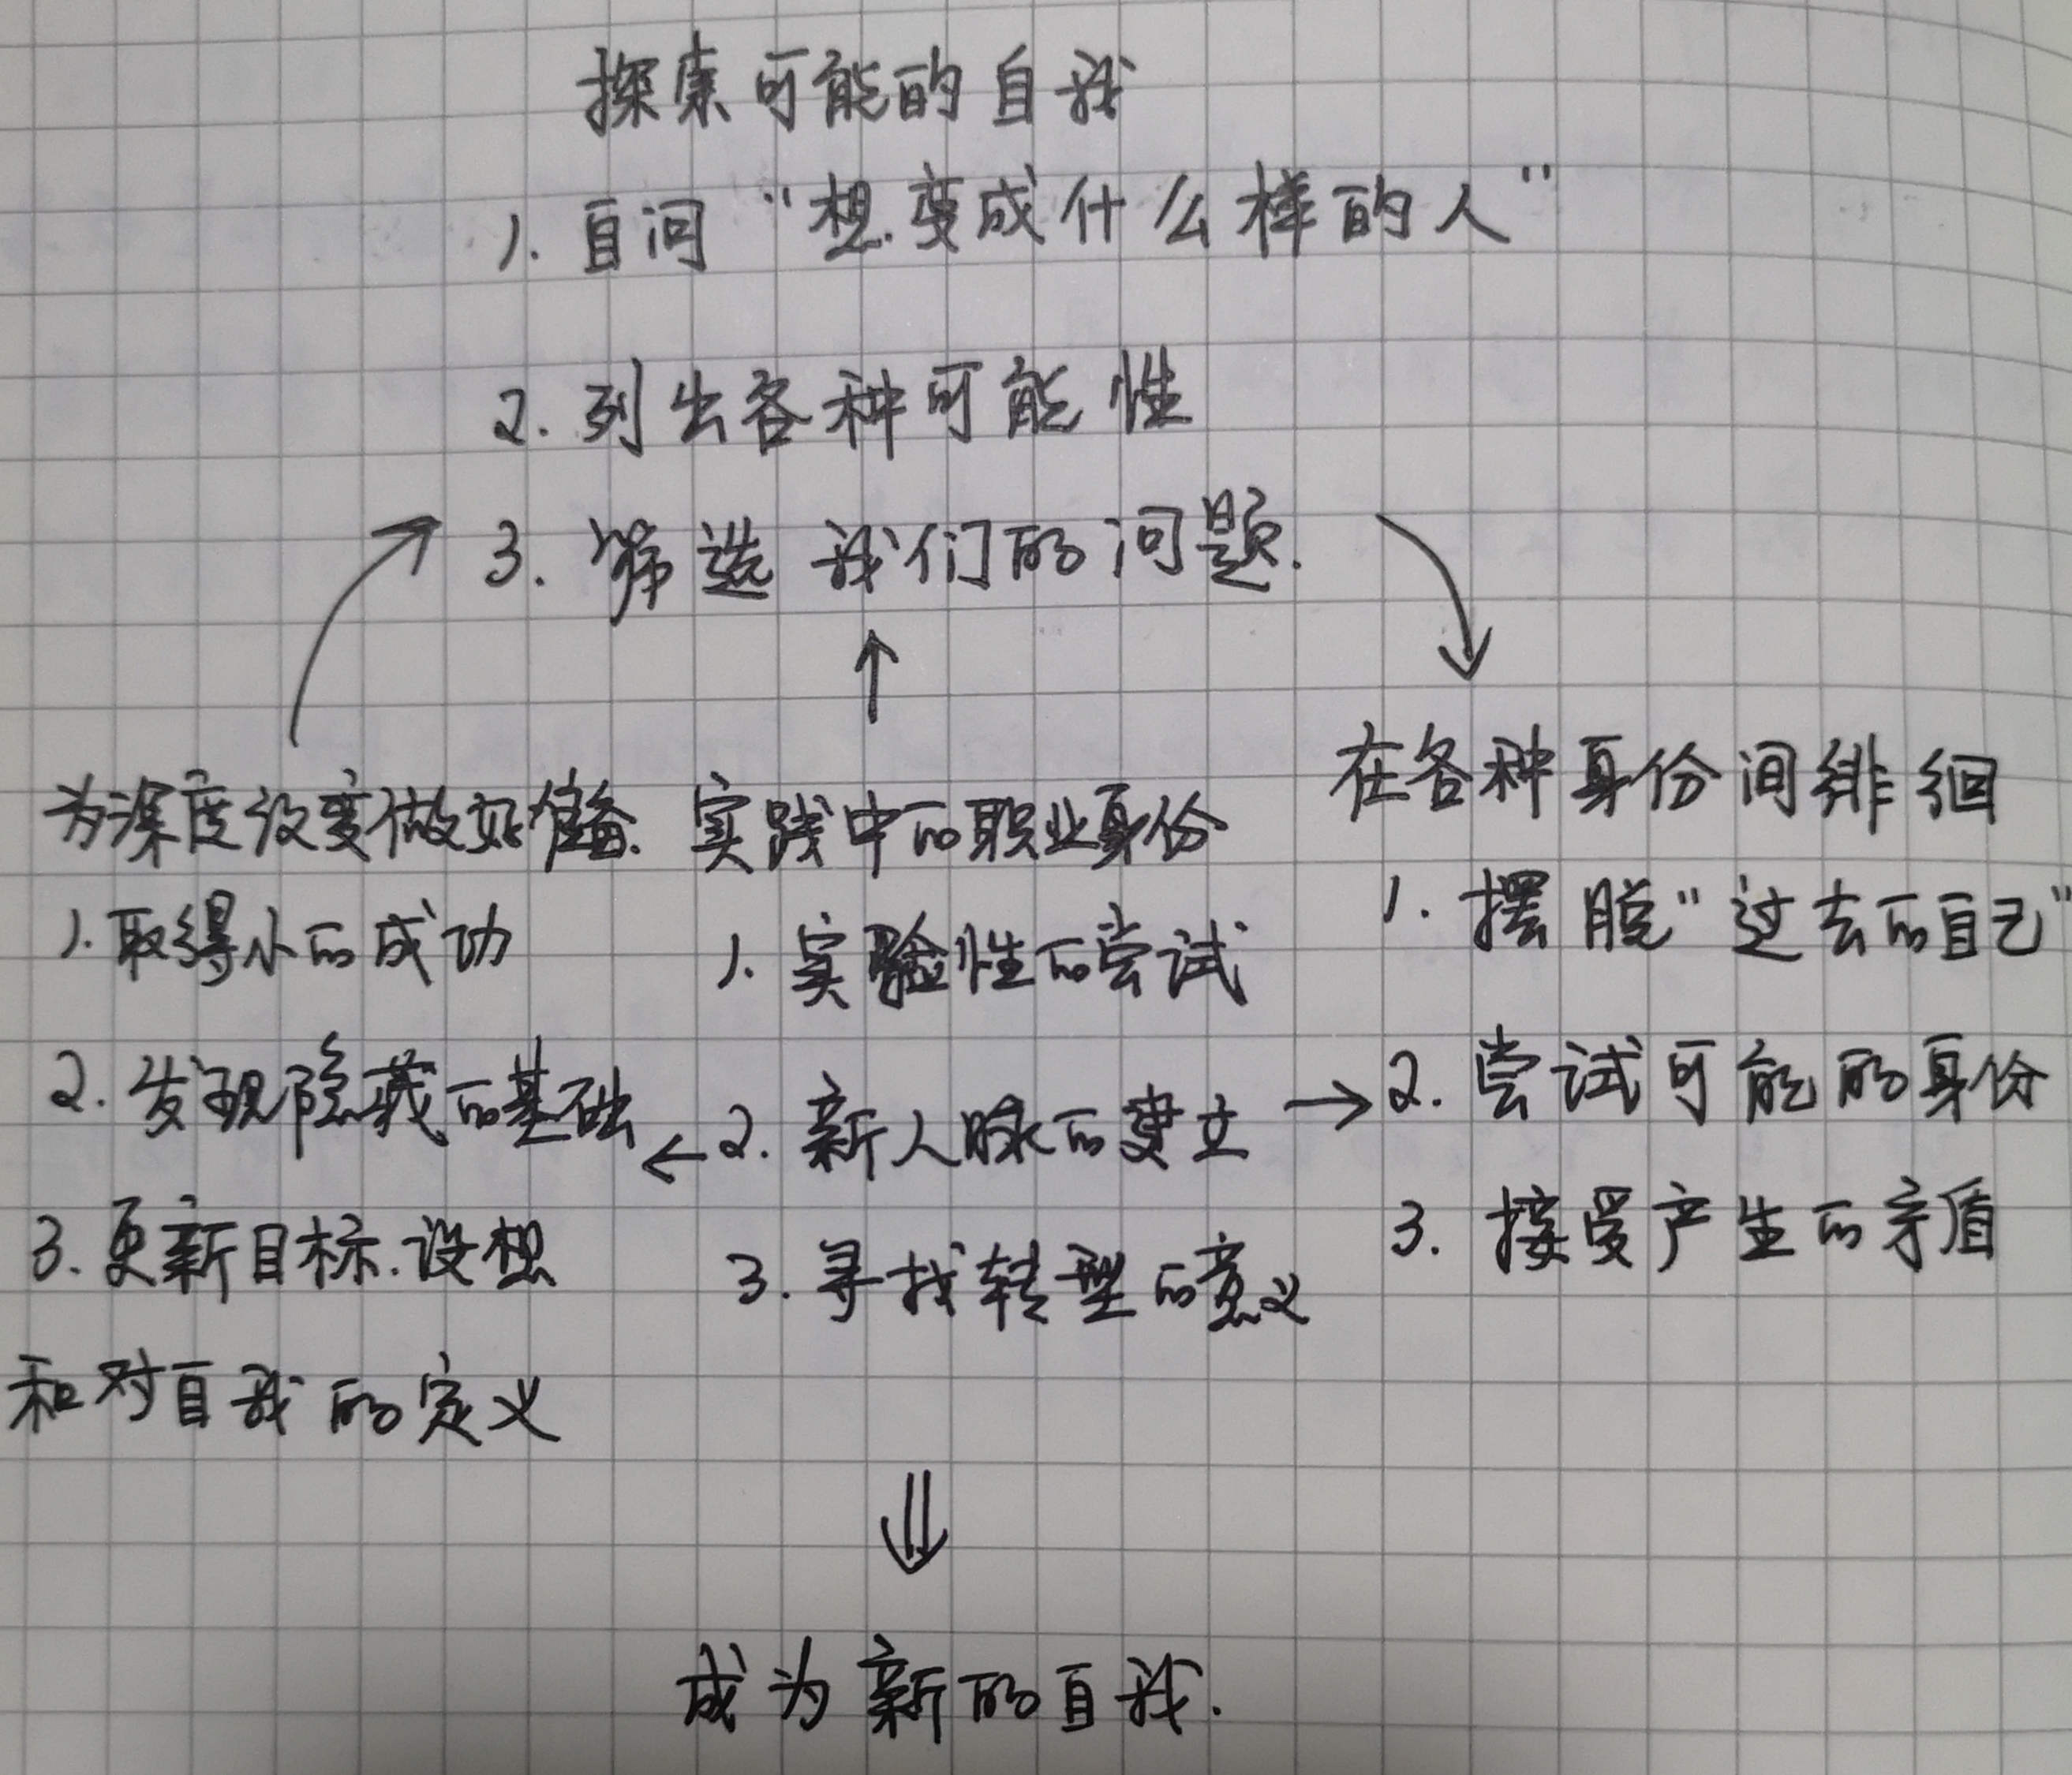 探索可能的自我
1. 自问“想变成什么样的人”
2. 列出各种可能性
3. 筛选我们的问题.
为深度改变做好准备.
1. 取得小的成功
2. 发现隐藏的基础
3. 更新目标.设想
和对自我的定义
实践中的职业身份
1. 实验性的尝试
2. 新人脉的建立
3. 寻找转型的意义
在各种身份间徘徊
1. 摆脱“过去的自己”
2. 尝试可能的身份
3. 接受产生的矛盾
成为新的自我.